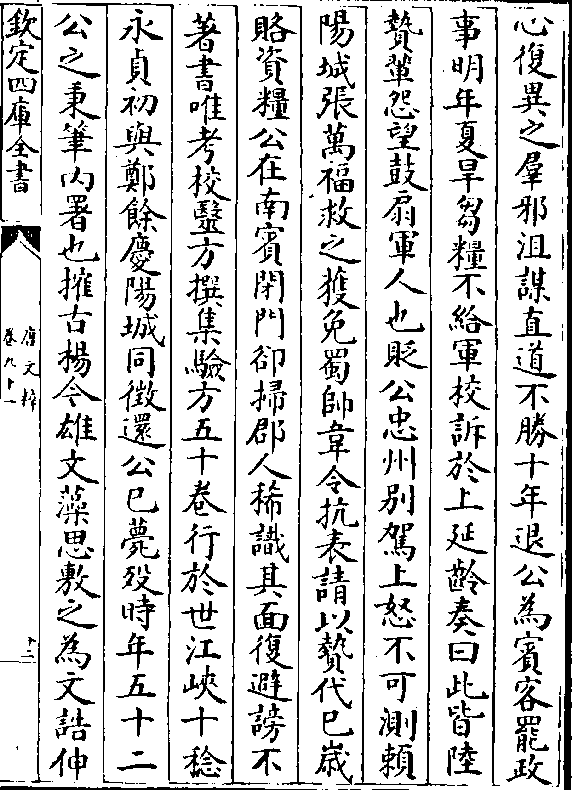 心復異之羣邪沮謀直道不勝十年退公為賓客罷政
事明年夏旱芻糧不給軍校訴於上延齡奏曰此皆陸
贄輩怨望鼓扇軍人也貶公忠州別駕上怒不可測賴
陽城張萬福救之獲免蜀帥韋令抗表請以贄代已嵗
賂資糧公在南賓閉門卻掃郡人稀識其面復避謗不
著書唯考校醫方撰集驗方五十卷行於世江峽十稔
永貞初與鄭餘慶陽城同徵還公已薨歿時年五十二
公之秉筆内署也搉古楊今雄文藻思敷之為文誥伸
欽定四庫全書
唐文粹
卷九十一
十二